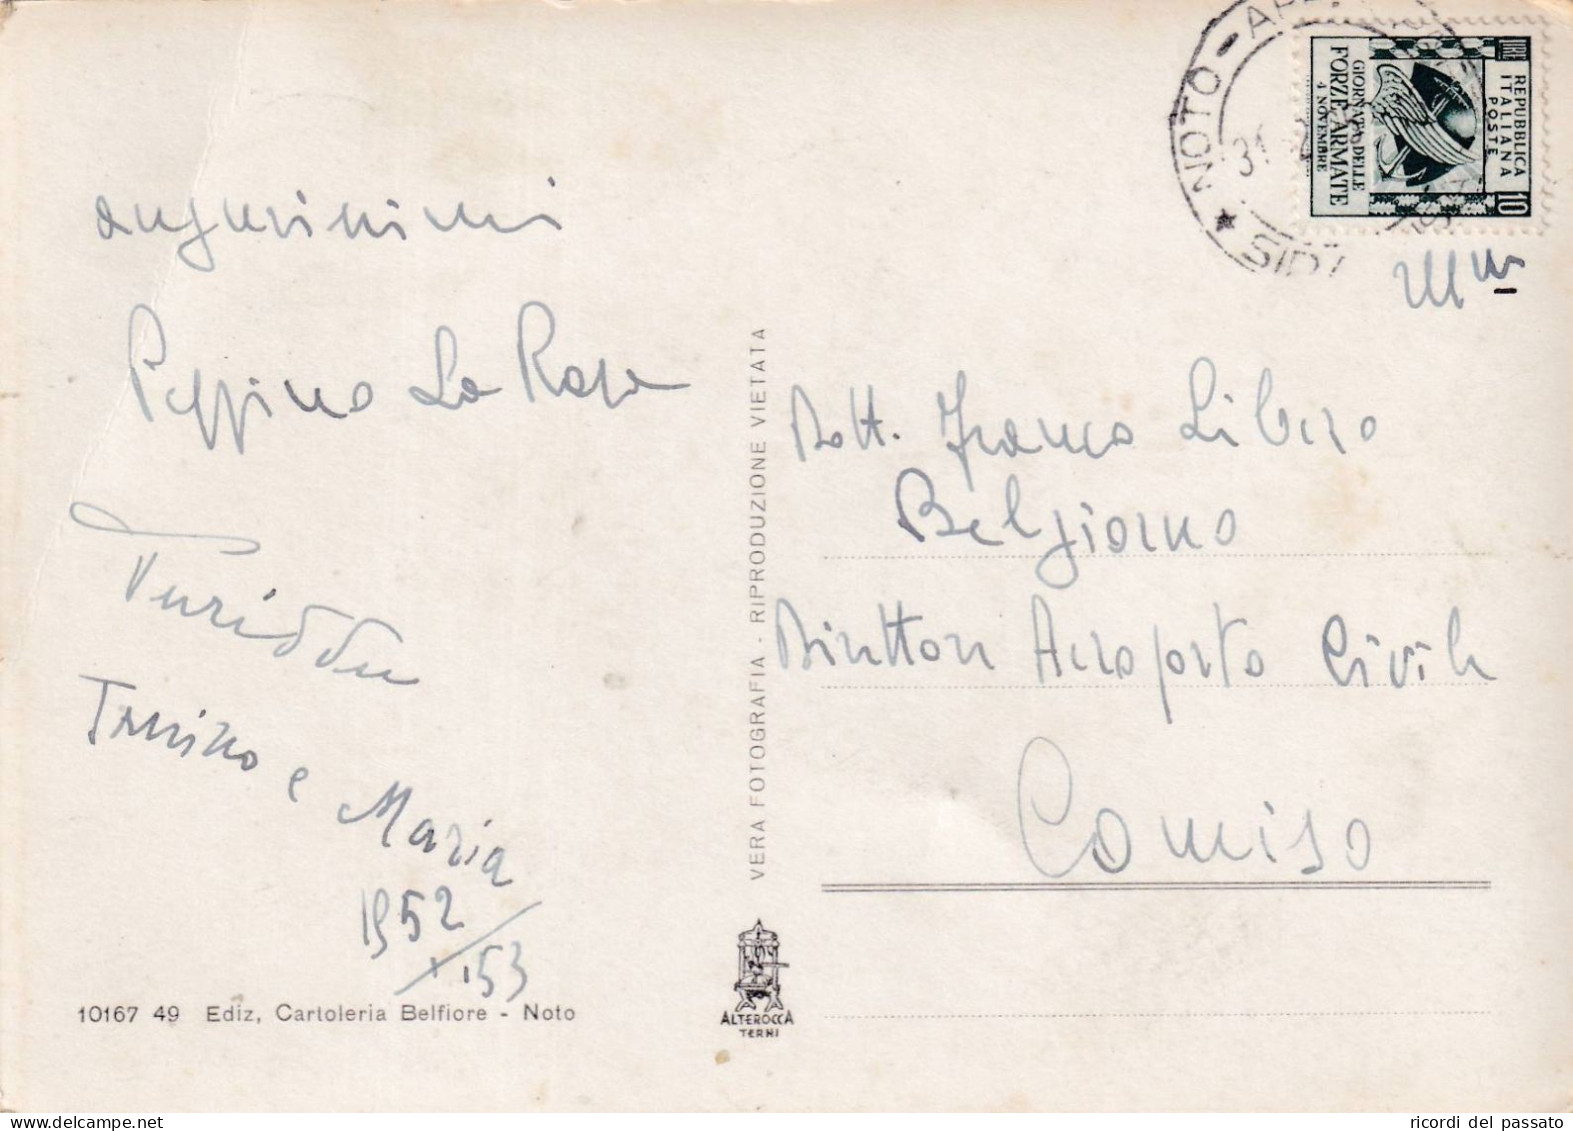 augurissimi
Peppino La Rosa
Turiddu
e Maria
1952
53
10167 49 Ediz, Cartoleria Belfiore - Noto
VERA FOTOGRAFIA - RIPRODUZIONE VIETATA
ALTEROCCA
TERNI
NOTO
31
REPUBBLICA
ITALIANA
POSTE
LIRE 10
GIORNATA DELLE
FORZE ARMATE
4 NOVEMBRE
Dott. Franco Libero
Belgiorno
Direttore Aeroporto Civile
Comiso
ricordi del passato